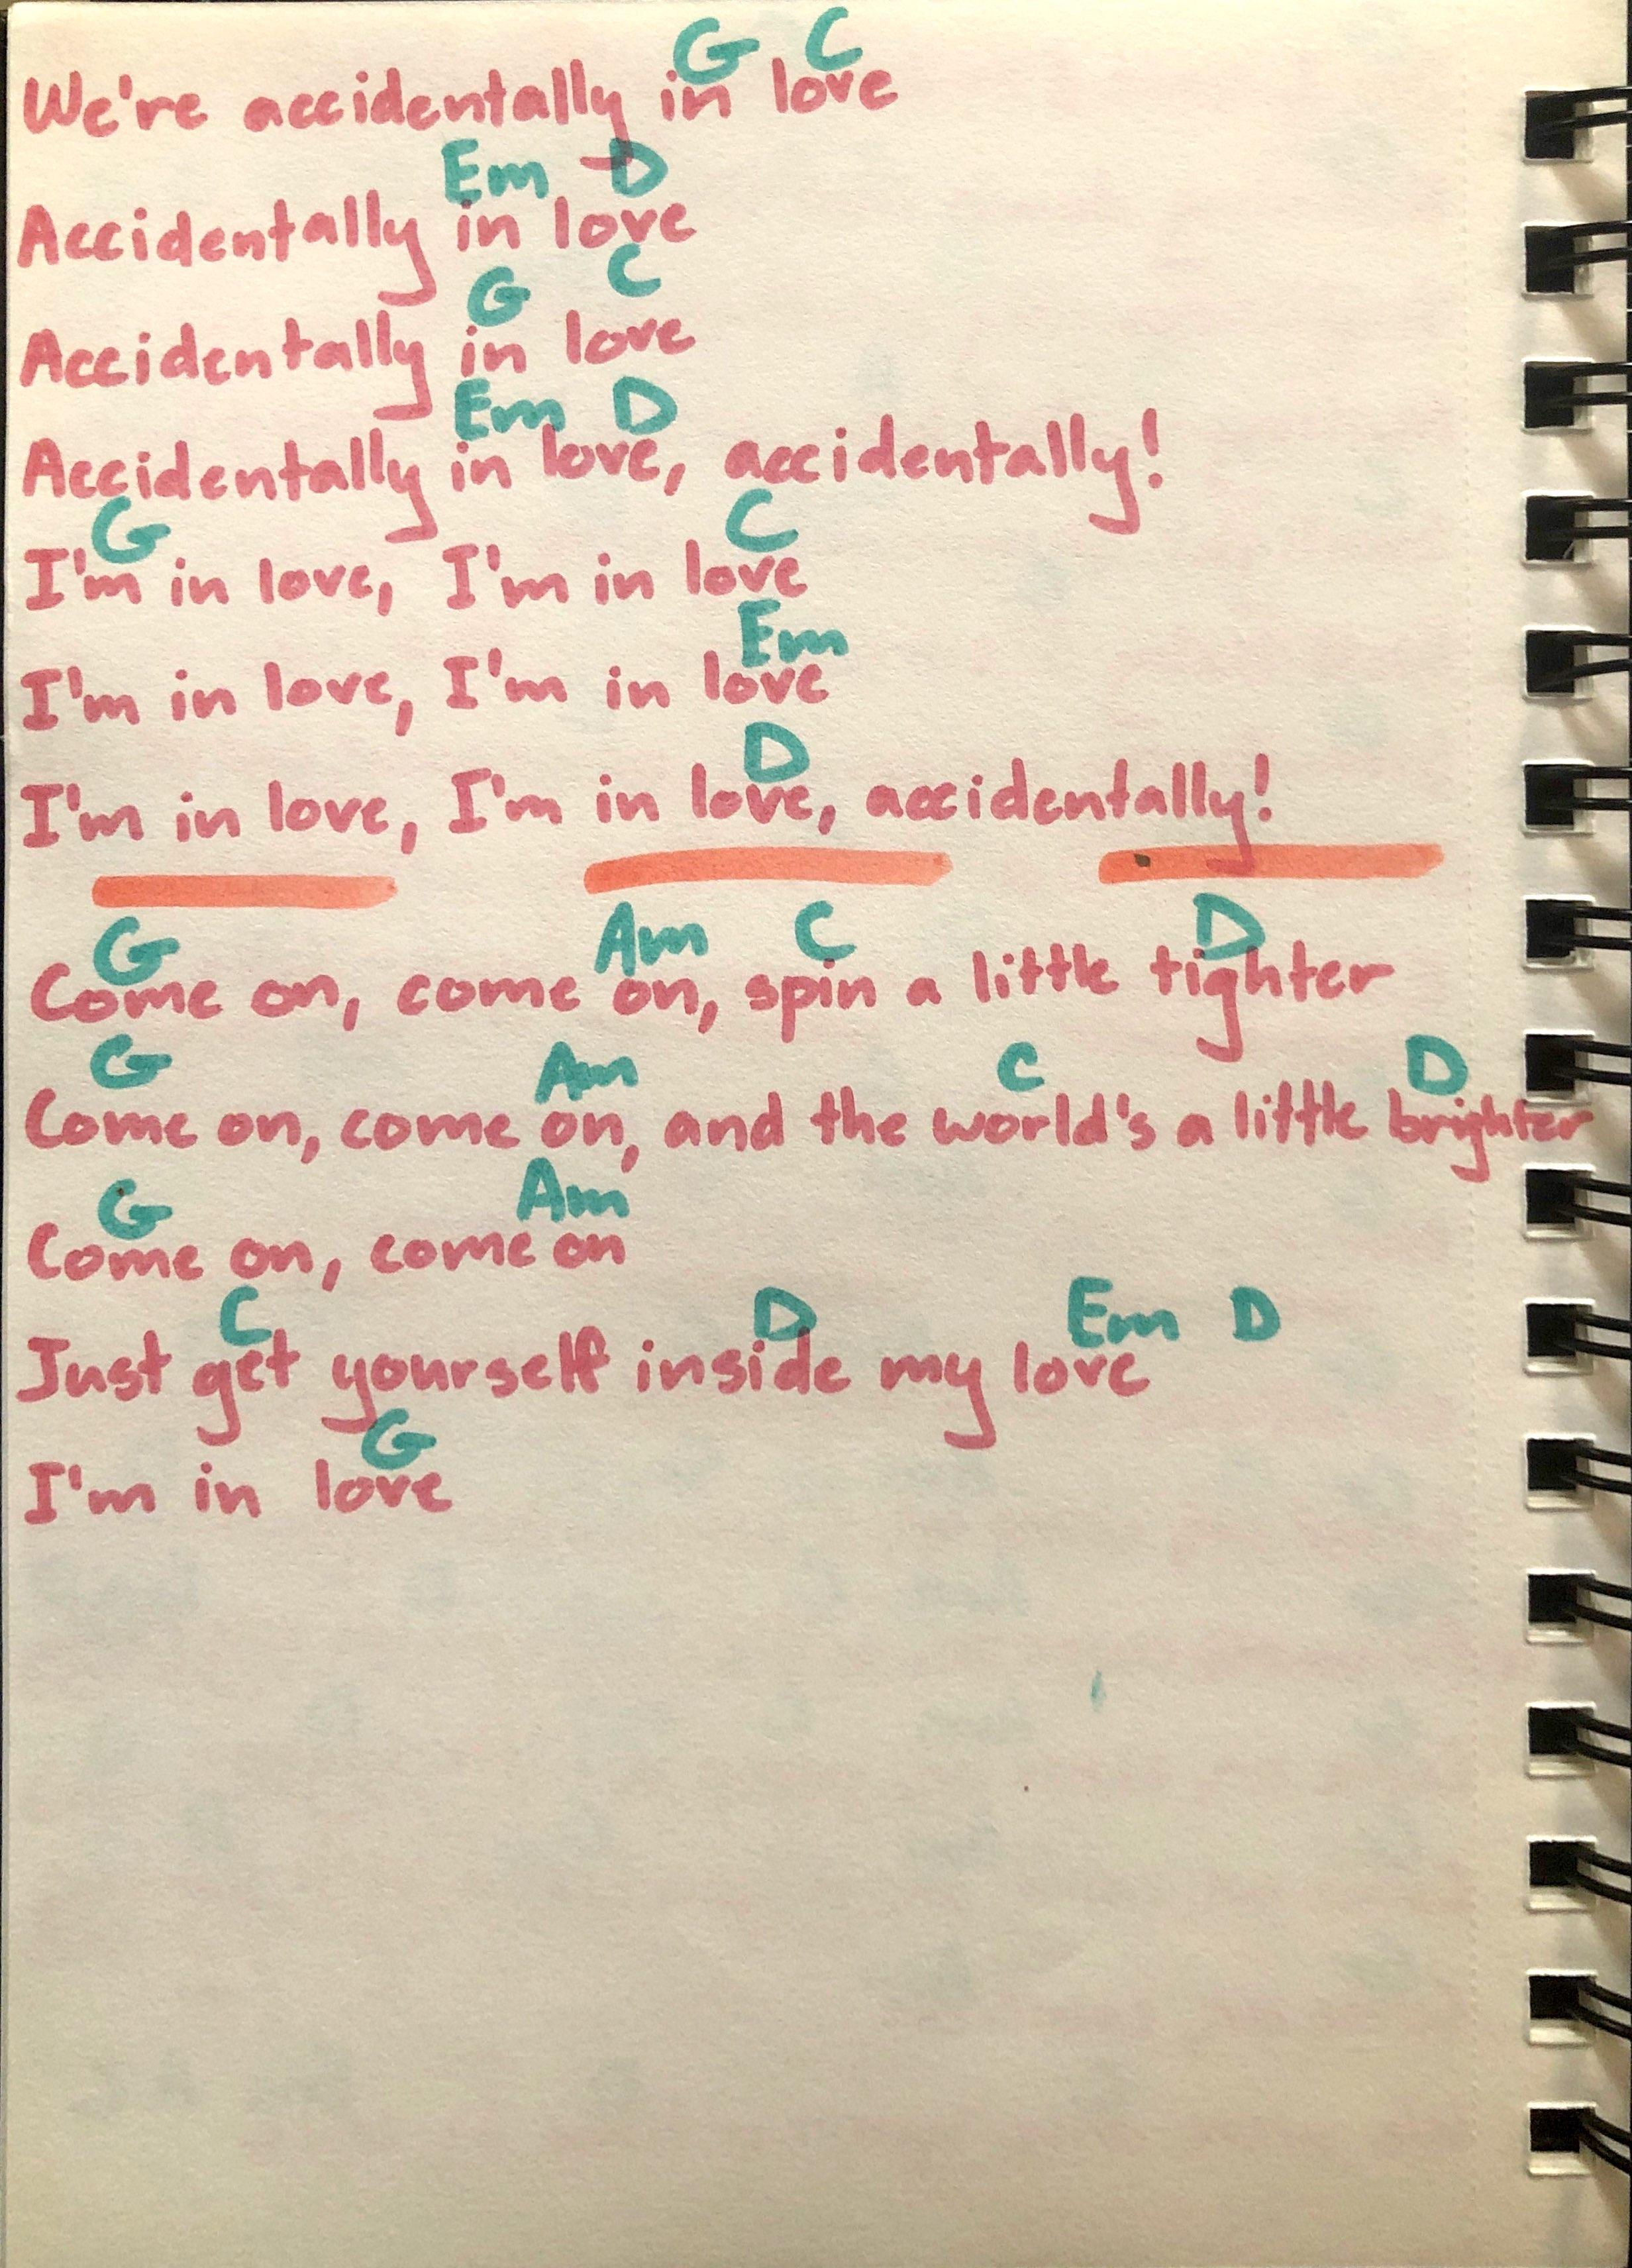 G C
We're accidentally in love
Em D
Accidentally in love
G C
Accidentally in love
Em D
Accidentally in love, accidentally!
G C
I'm in love, I'm in love
Em
I'm in love, I'm in love
D
I'm in love, I'm in love, accidentally!
G Am C D
Come on, come on, spin a little tighter
G Am C D
Come on, come on, and the world's a little brighter
G Am
Come on, come on
C D Em D
Just get yourself inside my love
G
I'm in love